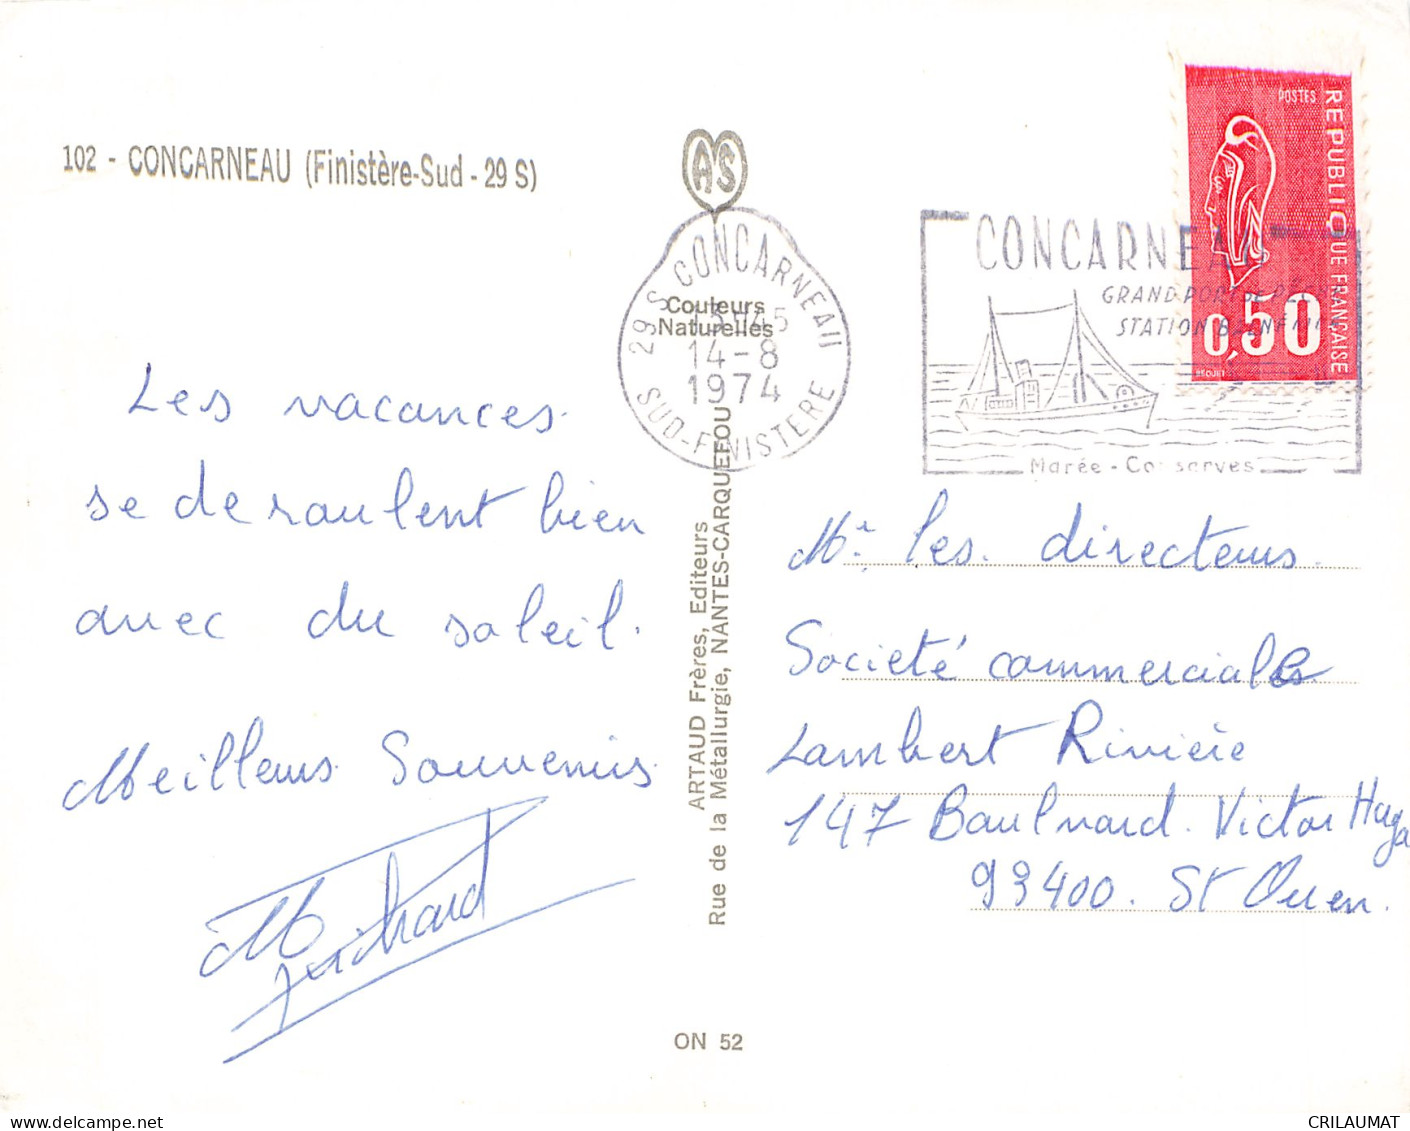 102 - CONCARNEAU (Finistère-Sud - 29 S)
AS
Couleurs
Naturelles
29 S CONCARNEAU
13H45
14-8
1974
SUD-FINISTERE
CONCARNEA
GRAND PORT DE PÊCHE
STATION BALNÉAIRE
Marée - Conserves
POSTES
REPUBLIQUE FRANÇAISE
0,50
BEQUET
Les vacances
se deroulent bien
avec du soleil.
Meilleurs Souvenirs
ARTAUD Frères, Editeurs
Rue de la Métallurgie, NANTES-CARQUEFOU
ON 52
Mr. les directeurs
Societé commerciale
Lambert Rivière
147 Boulevard Victor Hugo
93400. St Ouen.
CRILAUMAT